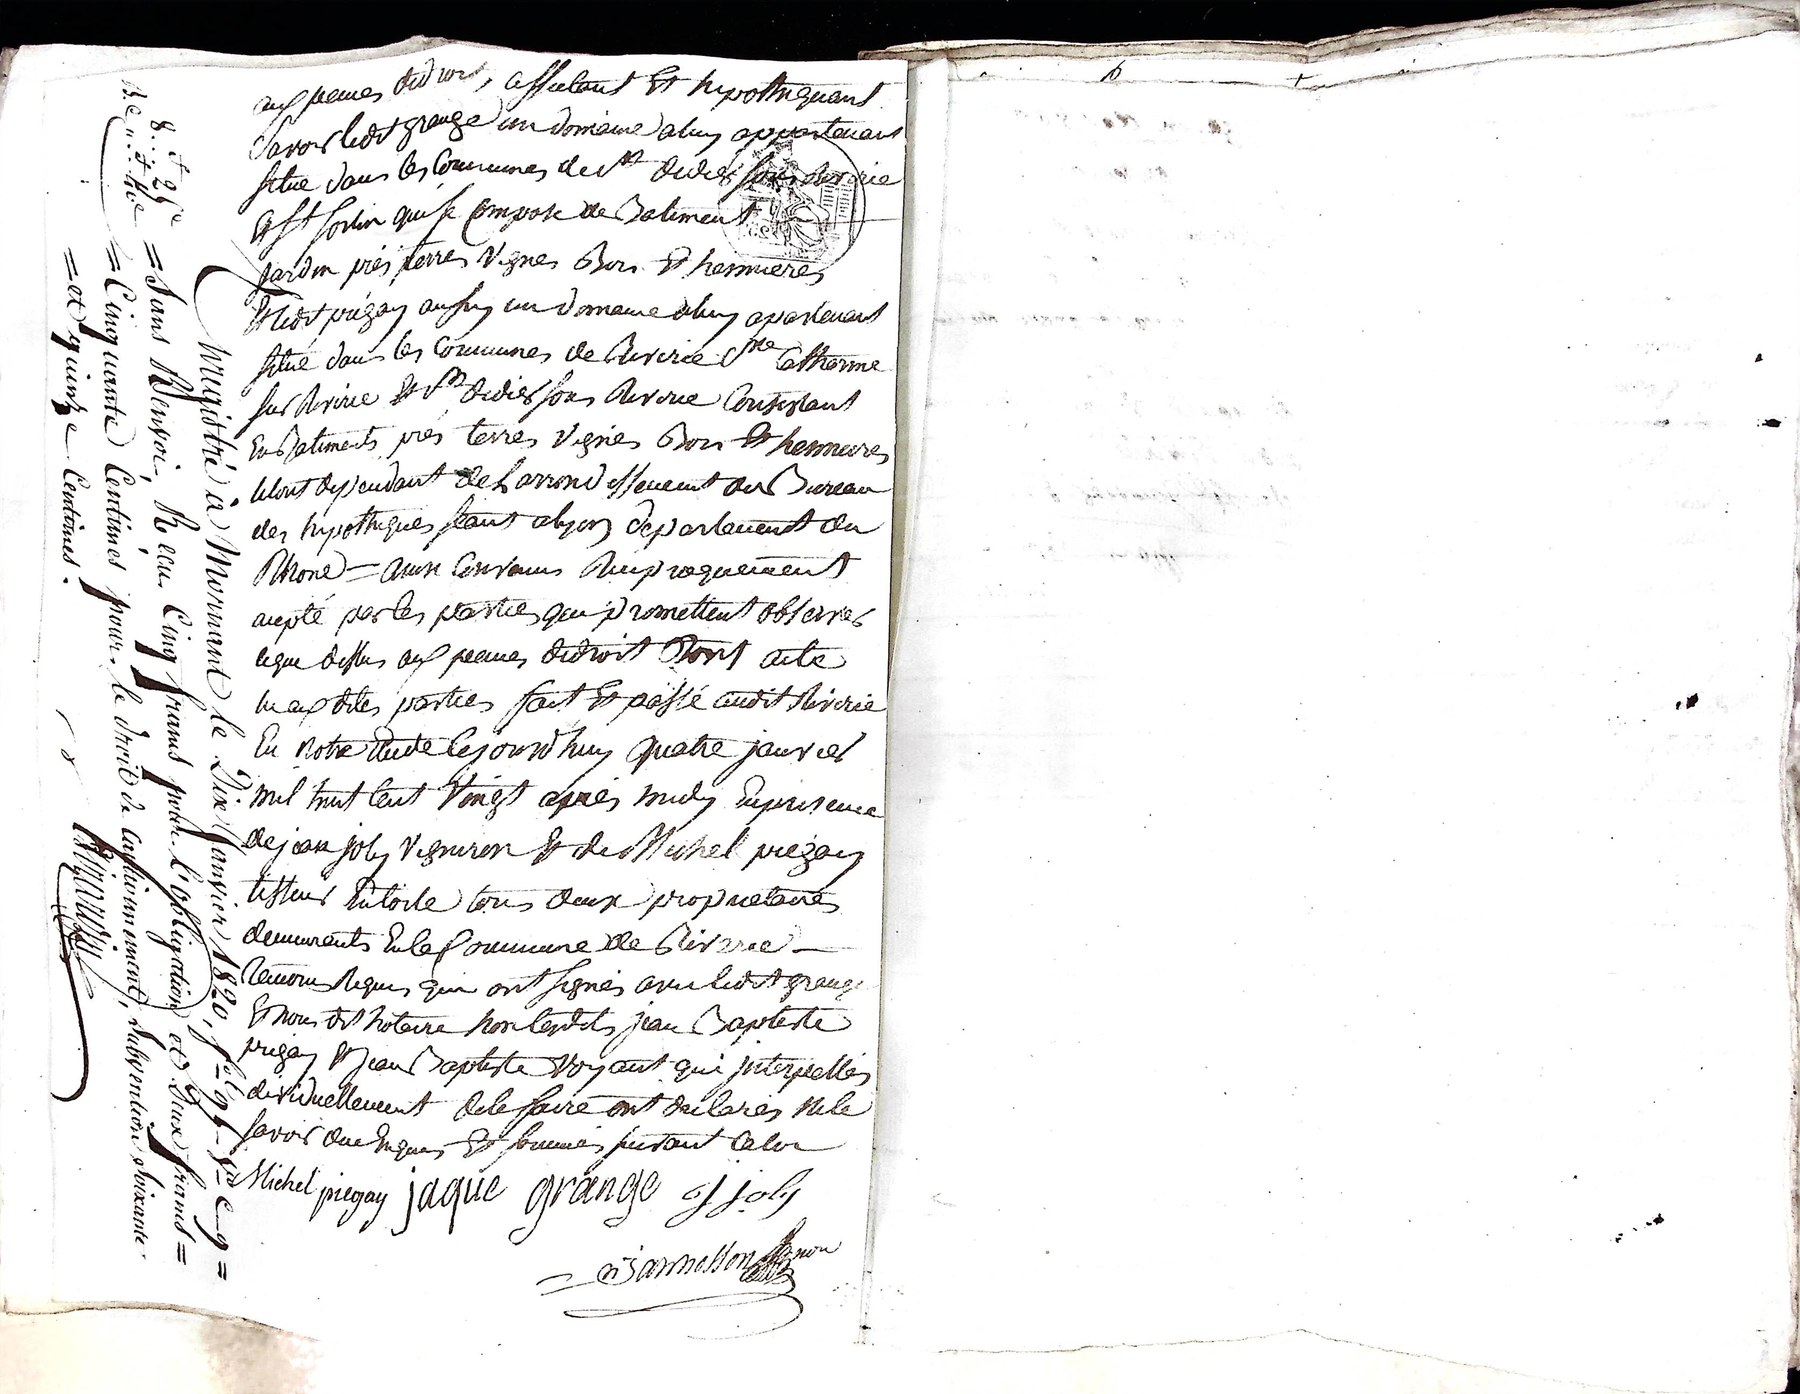 aux peines de droit, affectant et hypothequant
Savoir ledit grange un domaine a luy appartenant
situé dans les Communes de St didier sous Riverie
et St sorlin qui se Compose de Batiment
Jardin prés terres Vignes Bois et hermieres
Et ledit piégay aussy un domaine a luy apartenant
situé dans les Communes de Riverie Ste Catherine
sur Riverie et St didier sous Riverie Consistant
En Batiments prés terres Vignes Bois et hermieres
le tout dependant de Larrondissement du Bureau
des hypotheques séant a lyon departement du
Rhone = ainsi Convenu Reciproquement
acepté par les parties qui promettent observer
ce que dessus aux peines de droit Dont acte
lu aux dites parties fait et passé audit Riverie
En notre Etude Cejourd'huy quatre janvier
mil huit Cent Vingt aprés midy En presence
de jean joly Vigneron et de Michel piégay
tisseur En toile tous deux proprietaires
demeurants En la Commune de Riverie
temoins Requis qui ont signés avec ledit grange
Et nous dit notaire non lesdits jean Baptiste
piegay et Jean Baptiste Voyant qui jnterpellés
dividuellement de le faire ont declarés ne le
savoir de ce Enquis et sommés suivant la loi
Michel piegay jaque grange j joly
Jannesson non
Enregistré à Mornant le Dix Janvier 1820, fol 95 Vo C 9 =
= Sans Renvoi, Reçu Cinq francs pour L'obligation et Deux francs =
= Cinquante Centimes pour le droit de Cautionnement, subvention soixante
= et quinze Centimes.